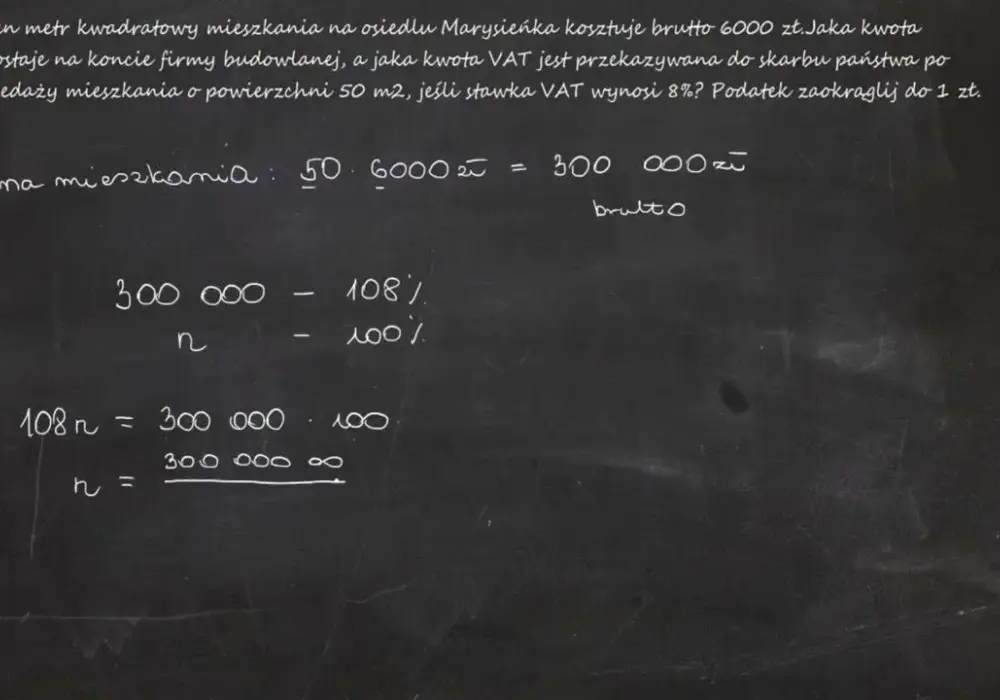 n metr kwadratowy mieszkania na osiedlu Marysieńka kosztuje brutto 6000 zł. Jaka kwota
ostaje na koncie firmy budowlanej, a jaka kwota VAT jest przekazywana do skarbu państwa po
edaży mieszkania o powierzchni 50 m2, jeśli stawka VAT wynosi 8%? Podatek zaokrąglij do 1 zł.
na mieszkania: 50 · 6000 zł = 300 000 zł
brutto
300 000 – 108%
n – 100%
108n = 300 000 · 100
n = 300 000 00